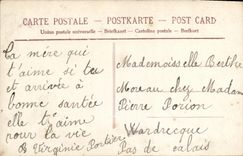 CARTE POSTALE — POSTKARTE — POST CARD
Union postale universelle — Briefkaart — Cartolina postale — Brefkort
Ta mère qui
t'aime si tu
et arrivée à
bonne santée
elle t'aime
pour la vie
Virginie
Mademoiselle Berthe
Moreau chez Madam
Pierre Porion
Wardrecque
Pas de calais